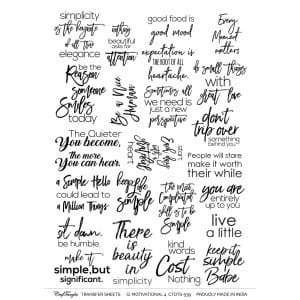 simplicity
is the keynote
of all true
elegance
nothing
beautiful
asks for
attention
good food is
good mood
expectation is
THE ROOT OF ALL
heartache.
Every
Moment
matters
be the
Reason
Someone
Smiles
today
Be a Nice
Human
Sometimes all
we need is
just a new
perspective
do small things
with
great love
don't
trip over
something
behind you
The Quieter
You become,
the more
You can hear.
start
each day with a
grateful
heart
People will stare
make it worth
their while
a Simple Hello
could lead to
a Million Things
Keep
Life
Simple
The most
Complicated
skill is
to be
Simple
you are
entirely
up to you
sit down.
be humble.
There
is
beauty
in
simplicity
live
a little
make it
simple,but
significant.
kind
words
Cost
Nothing
keep it
simple
Babe
TRANSFER SHEETS
MOTIVATIONAL 4
CTOTS-539
PROUDLY MADE IN INDIA